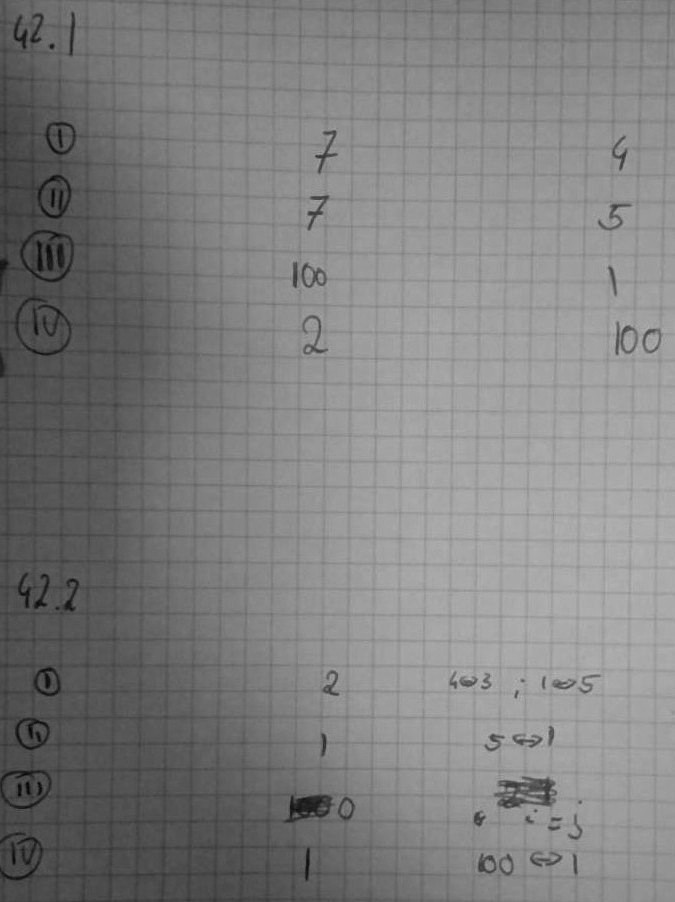 42.1
I 7 4
II 7 5
III 100 1
IV 2 100
42.2
I 2 4⇔3 ; 1⇔5
II 1 5⇔1
III 0 i=j
IV 1 100⇔1